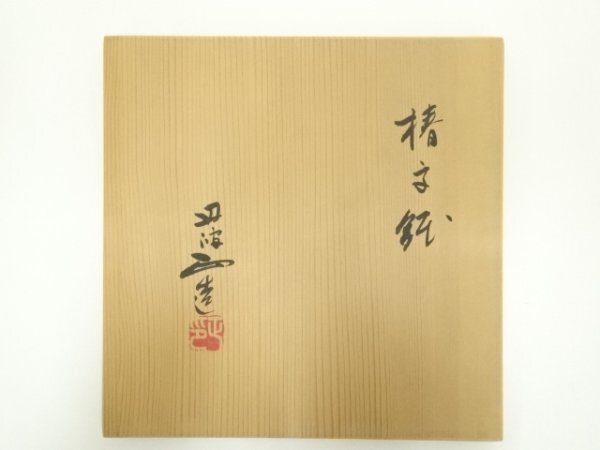 椿文鉢
丹波
造